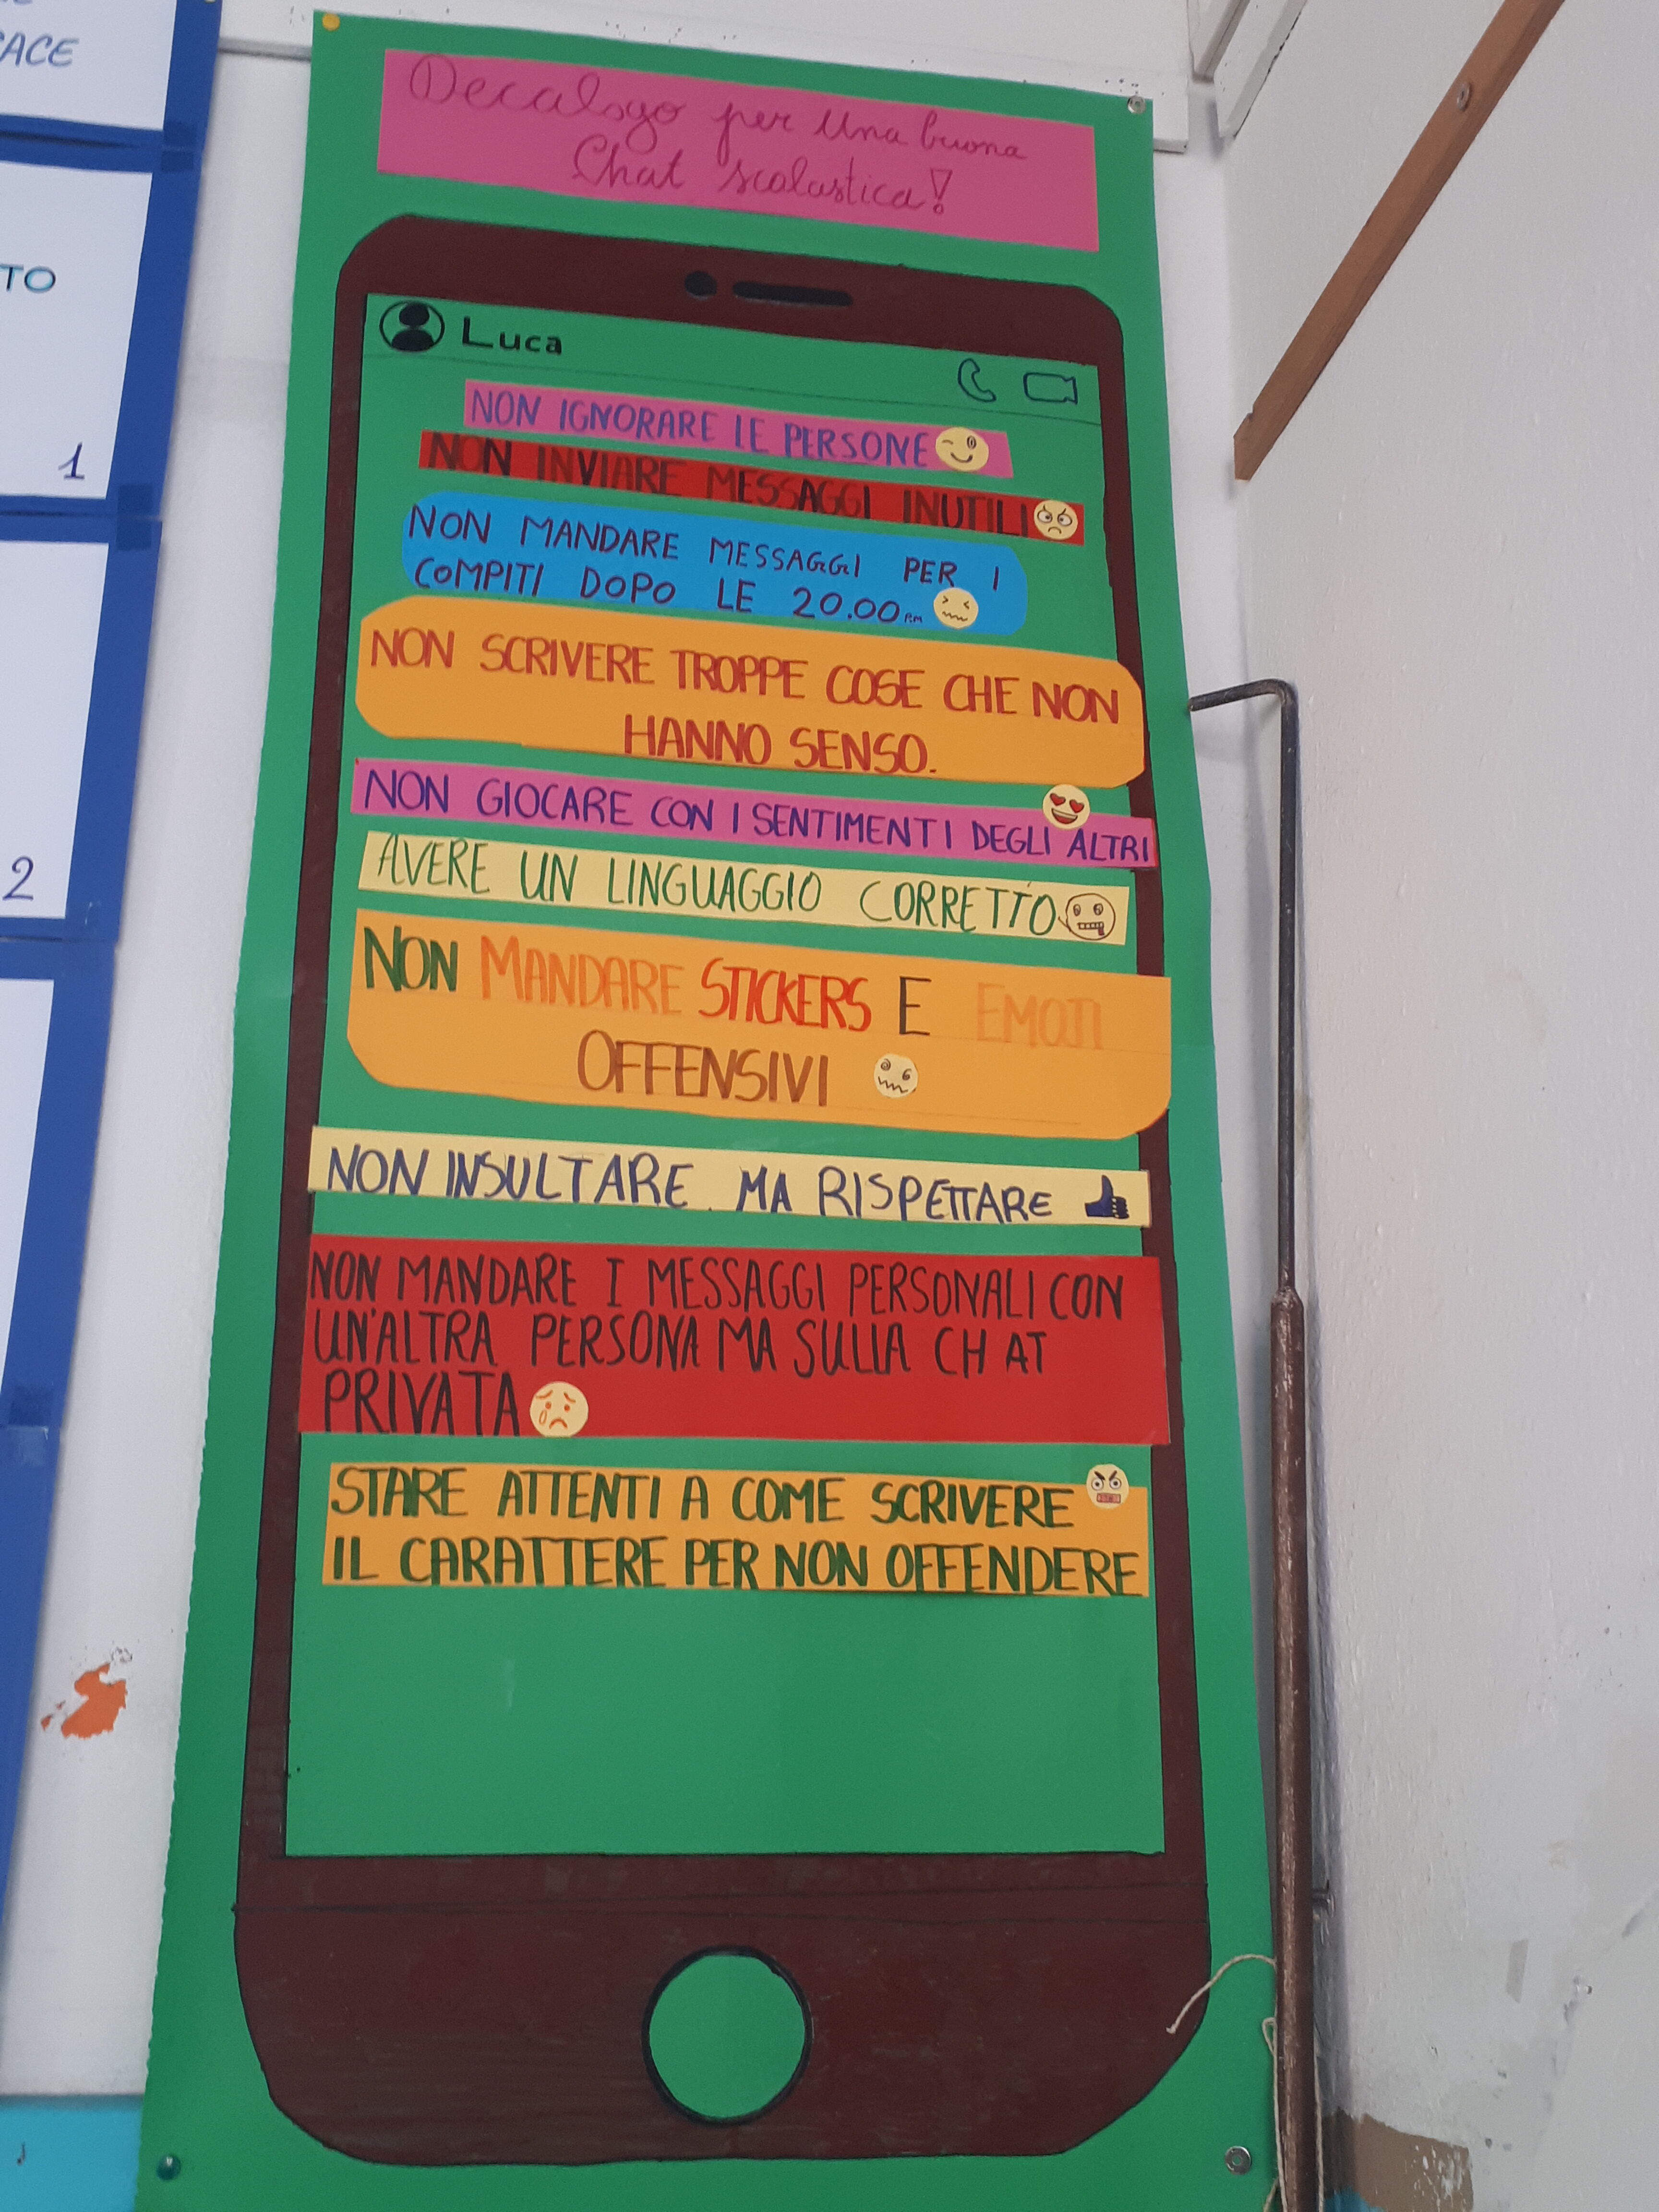 ACE
TO
1
2
Decalogo per una buona
Chat scolastica!
Luca
NON IGNORARE LE PERSONE
NON INVIARE MESSAGGI INUTILI
NON MANDARE MESSAGGI PER I
COMPITI DOPO LE 20.00 P.M
NON SCRIVERE TROPPE COSE CHE NON
HANNO SENSO.
NON GIOCARE CON I SENTIMENTI DEGLI ALTRI
AVERE UN LINGUAGGIO CORRETTO
NON MANDARE STICKERS E EMOJI
OFFENSIVI
NON INSULTARE MA RISPETTARE
NON MANDARE I MESSAGGI PERSONALI CON
UN'ALTRA PERSONA MA SULLA CHAT
PRIVATA
STARE ATTENTI A COME SCRIVERE
IL CARATTERE PER NON OFFENDERE